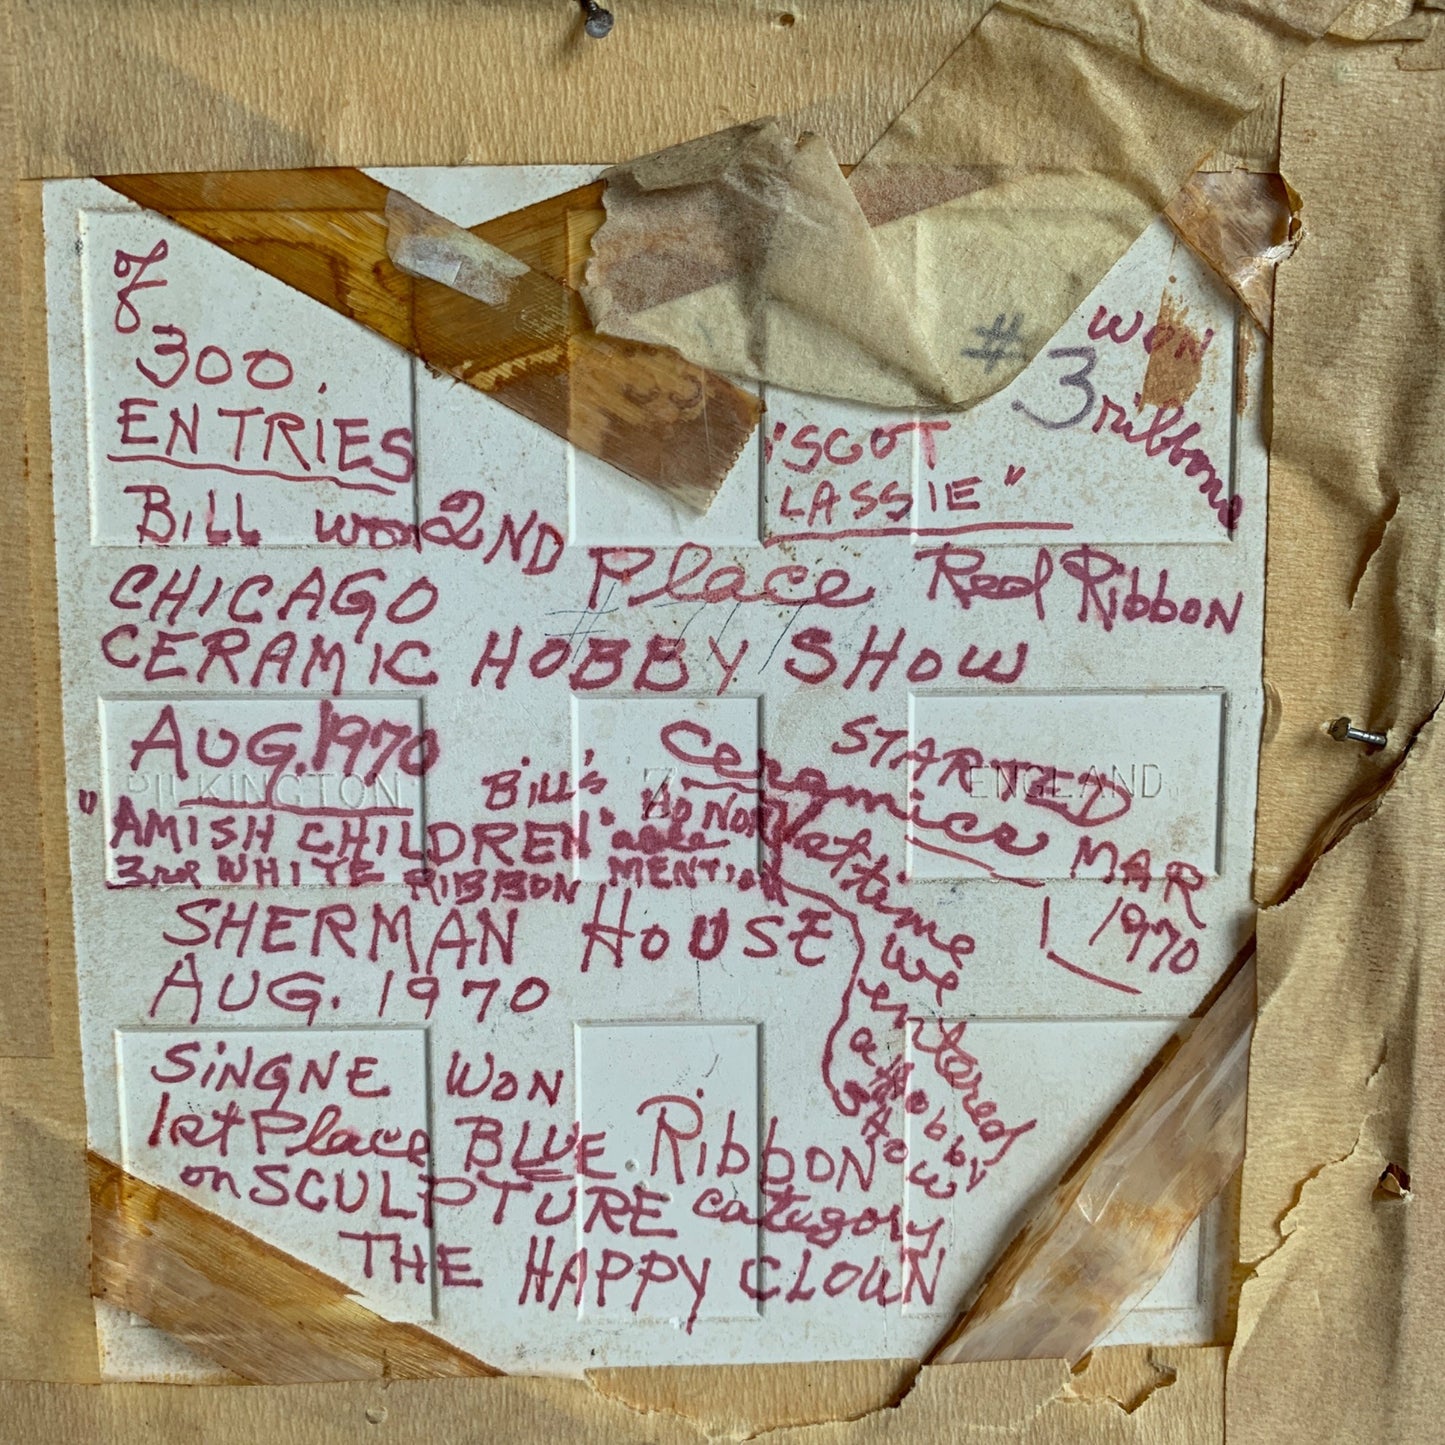 of
300.
ENTRIES
#
WON
3 ribbons
"SCOT
LASSIE"
BILL won 2ND Place Red Ribbon
CHICAGO
CERAMIC HOBBY SHOW
AUG. 1970
PILKINGTON
ENGLAND
BILL'S
"AMISH CHILDREN"
3rd WHITE RIBBON
HONOR
able
MENTION
STARTED
Ceramics MAR
1 1970
1st time
we
entered
a Hobby
Show
SHERMAN HOUSE
AUG. 1970
SiNGNE WON
1st Place BLUE Ribbon
on SCULPTURE category
THE HAPPY CLOWN